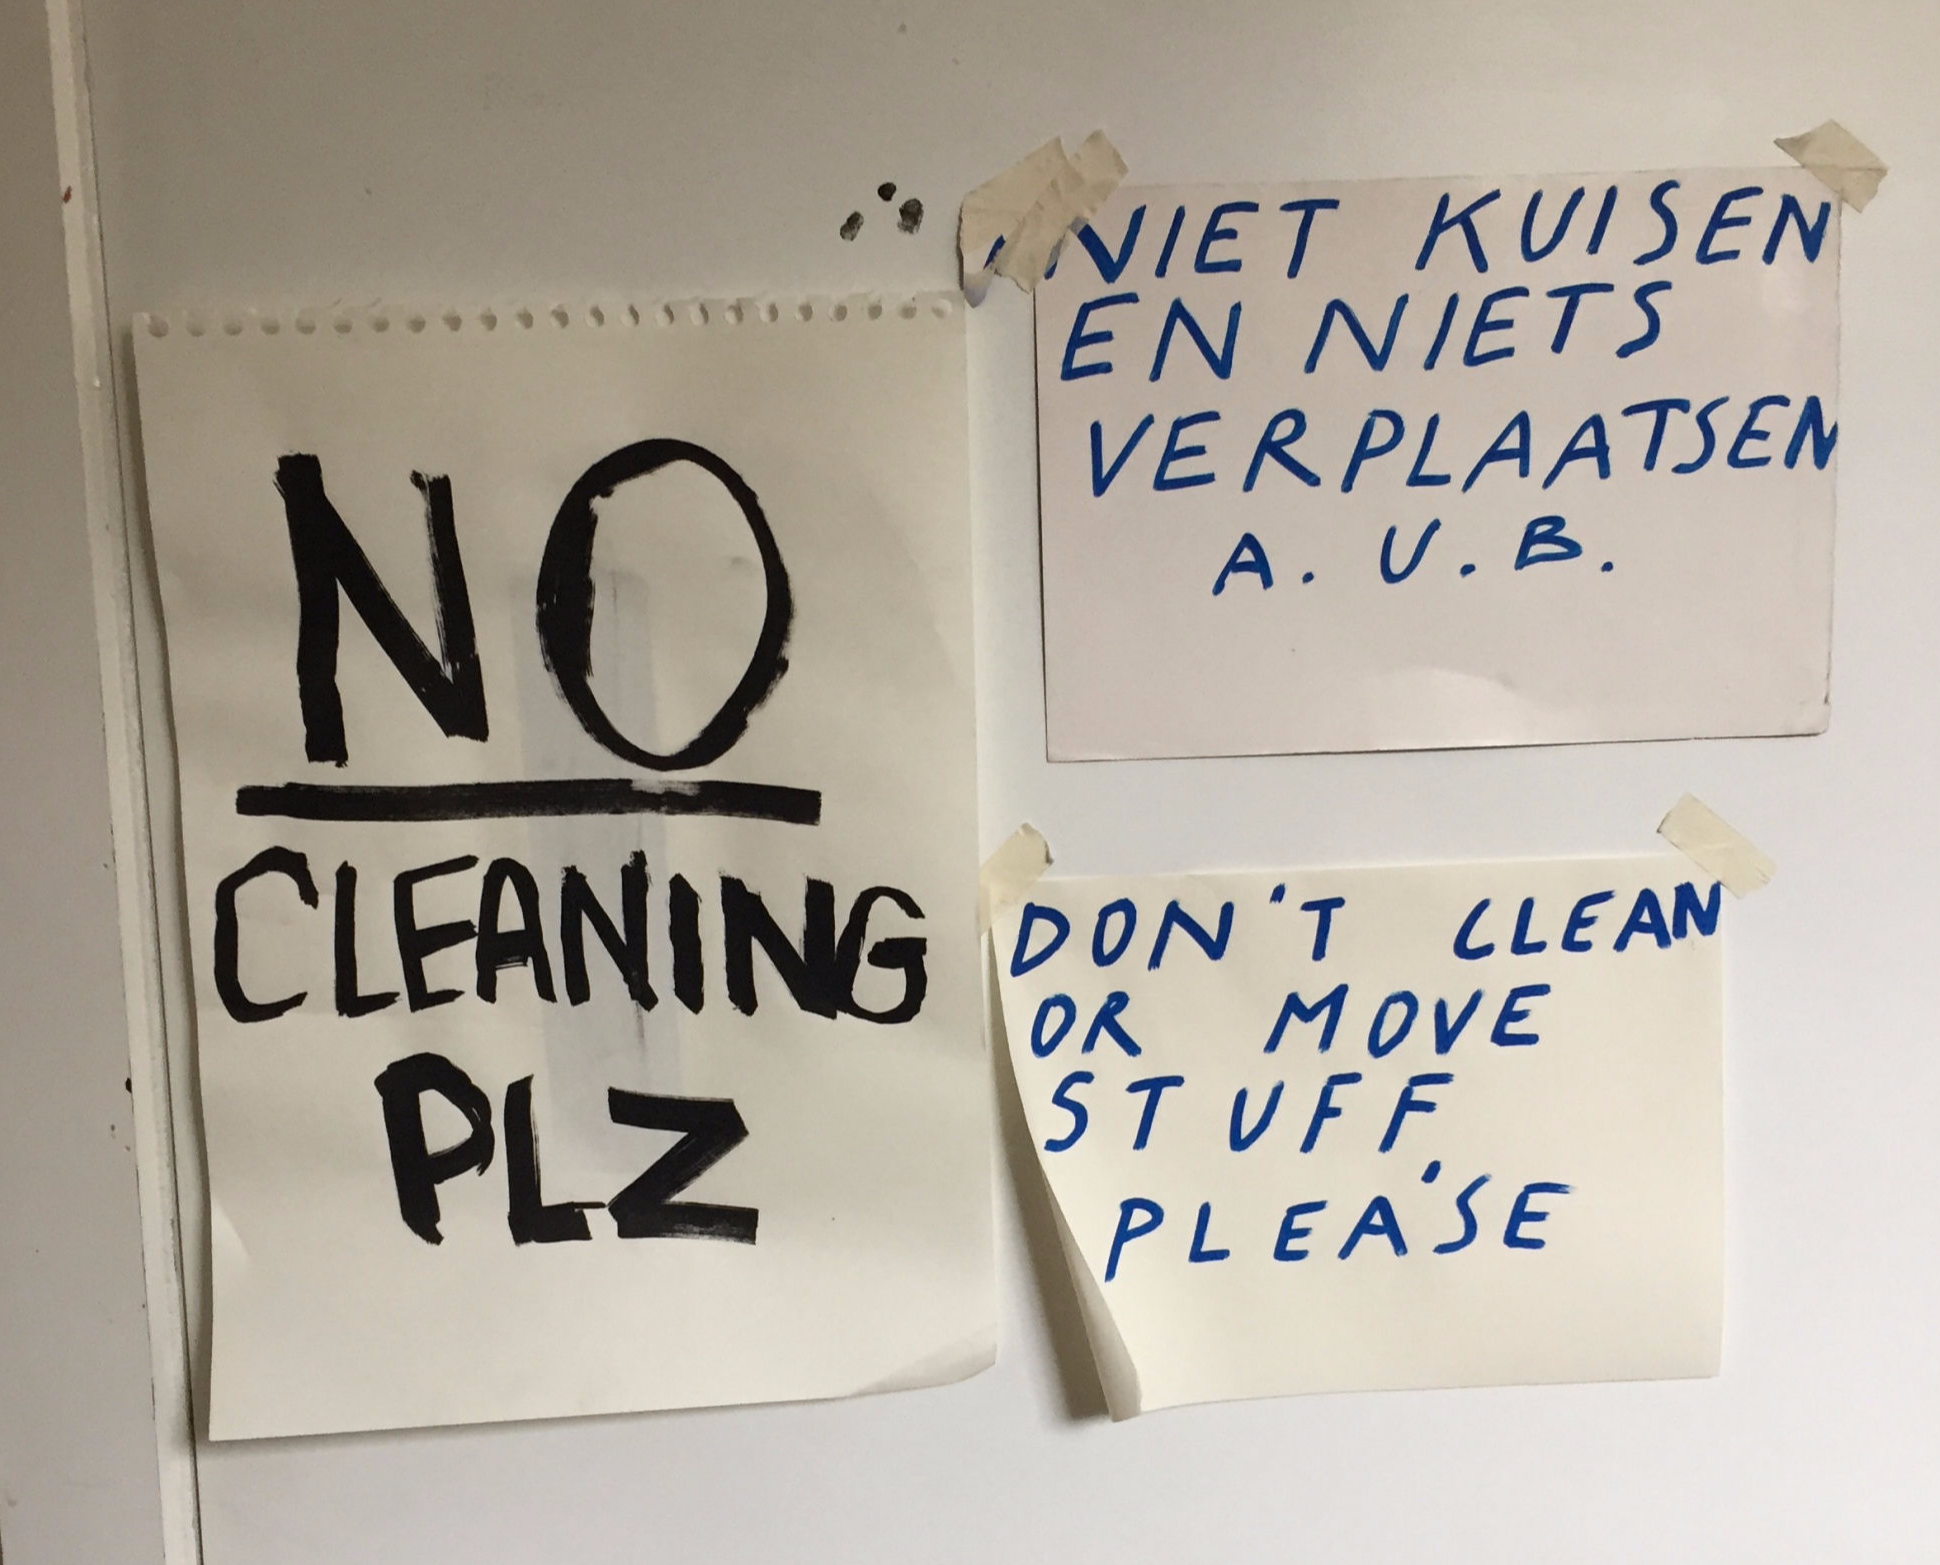 NO
CLEANING
PLZ
NIET KUISEN
EN NIETS
VERPLAATSEN
A.U.B.
DON'T CLEAN
OR MOVE
STUFF.
PLEASE